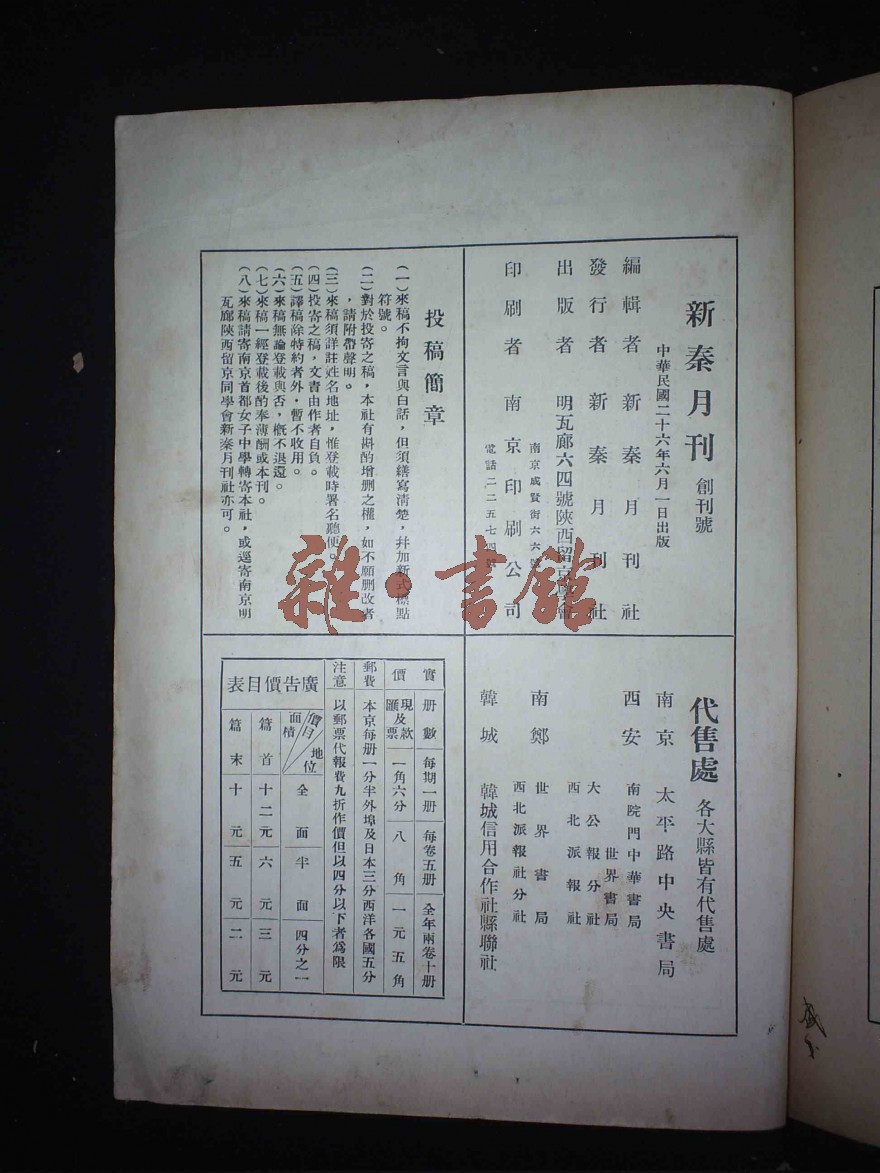 新秦月刊 創刊號
中華民國二十六年六月一日出版
編輯者 新秦月刊社
發行者 新秦月刊社
出版者 明瓦廊六四號陝西留京學會
南京成賢街六六號
印刷者 南京印刷公司
電話二二五七四號
投稿簡章
(一)來稿不拘文言與白話,但須繕寫清楚,幷加新式標點
符號。
(二)對於投寄之稿,本社有斟酌增删之權,如不願删改者
,請附帶聲明。
(三)來稿須詳註姓名地址,惟登載時署名聽便。
(四)投寄之稿,文責由作者自負。
(五)譯稿除特約者外,暫不收用。
(六)來稿無論登載與否,概不退還。
(七)來稿一經登載後酌奉薄酬或本刊。
(八)來稿請寄南京首都女子中學轉寄本社,或逕寄南京明
瓦廊陝西留京同學會新秦月刊社亦可。
代售處 各大縣皆有代售處
南京 太平路中央書局
西安 南院門中華書局
世界書局
大公報分社
西北派報社
南鄭 世界書局
西北派報社分社
韓城 韓城信用合作社縣聯社
實價 册數 每期一册 每卷五册 全年兩卷十册
現款及匯票 一角六分 八角 一元五角
郵費 本京每册一分半外埠及日本三分西洋各國五分
注意 以郵票代報費九折作價但以四分以下者爲限
廣告價目表
面積 價目 地位 全面 半面 四分之一
篇首 十二元 六元 三元
篇末 十元 五元 二元
雜·書館